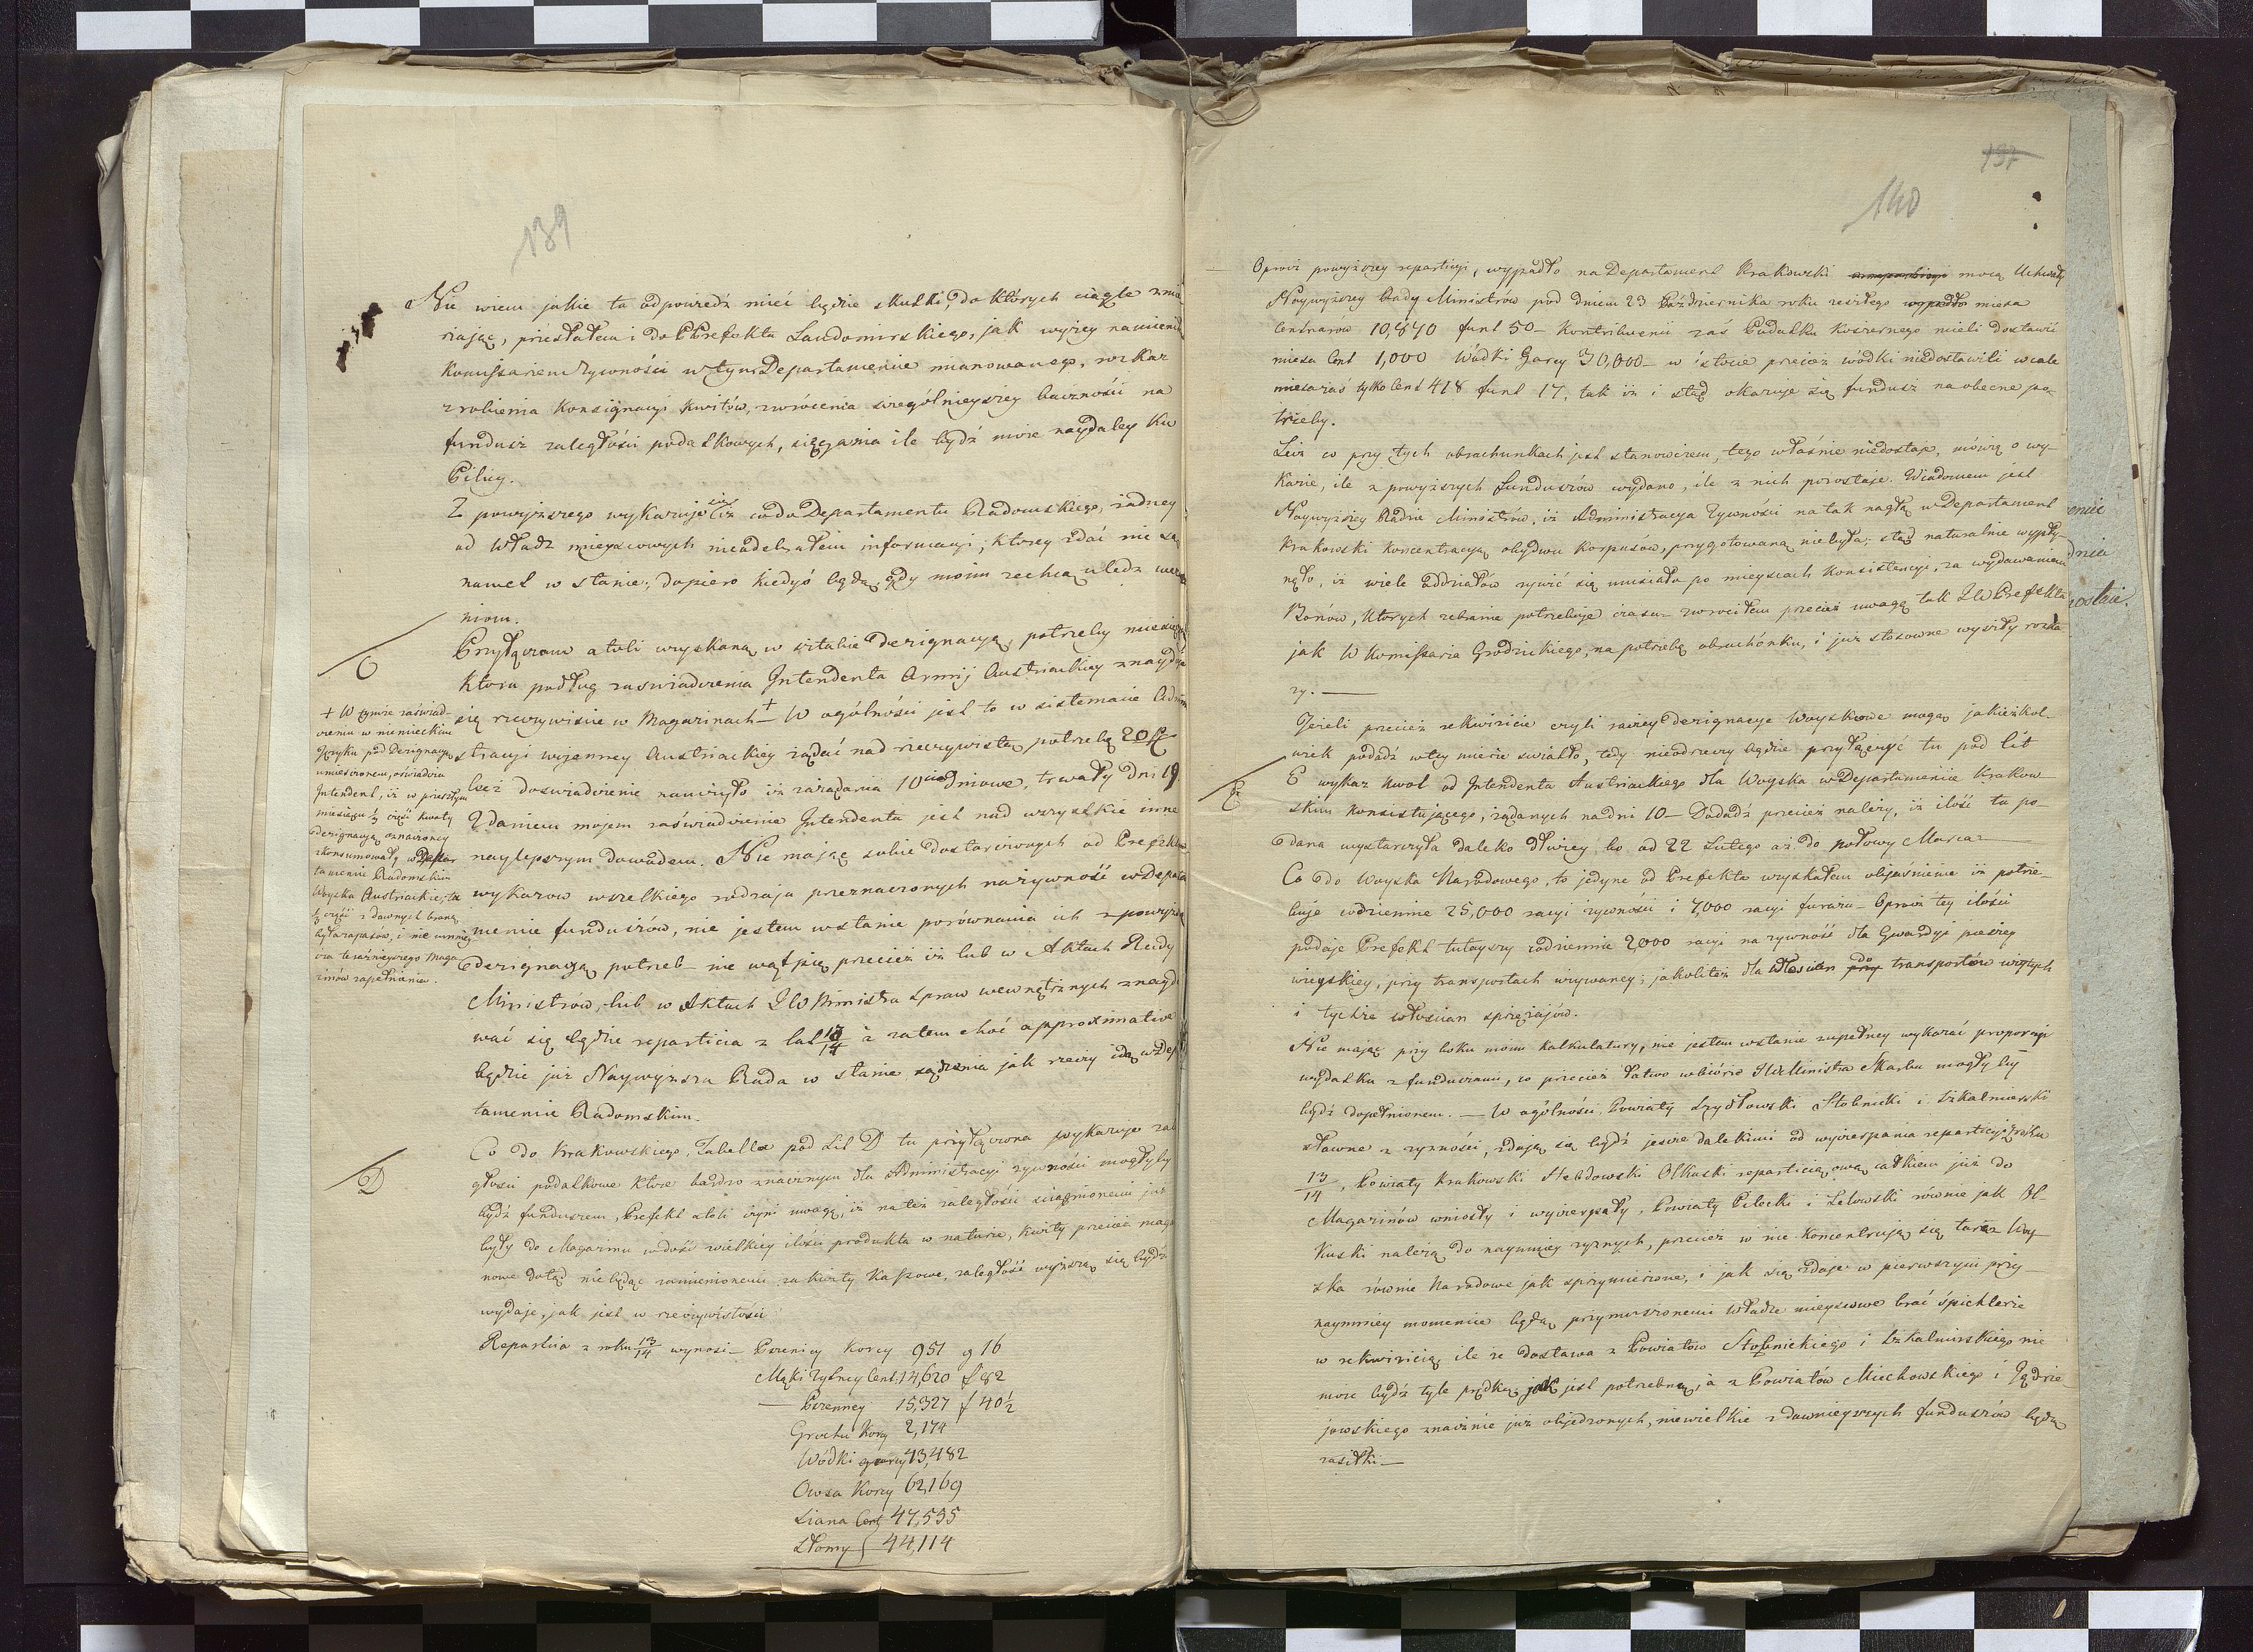 139
Nie wiem jakie ta odpowiedź mieć będzie skutki, do których ciągle zmie
rzając, przesłałem i do PPrefekta Sandomirskiego, jak wyżey namienił
Komissarzem Żywności w tym Departamencie mianowanego, rozkaz
zrobienia Konsignacyi Kwitów, zwrócenia szczególnieyszey baczności na
fundusz zaległości podatkowych, sięgania ile bydź może naydaley ku
Pilicy.
Z powyższego wykazuje się iż co do Departamentu Radomskiego, żadney
od Władz mieyscowych nieodebrałem informacyi, ktorey zdać nie są
nawet w stanie, dopiero kiedyś będą, gdy moim zechcą uledz wez
niom.
C
Przyłączam atoli wyskaną w sztabie dezignacyą potrzeby miesięcz
ktora podług zaswiadczenia Intendenta Armij Austriackiey znayduje
się rzeczywiscie w Magazinach + W ogólności jest to w sistemacie Admini
stracyi wojenney Austriackiey żądać nad rzeczywistą potrzebę 20
lecz doswiadczenie nauczyło iż zażądania 10cio dniowe, trwały dni 19
Zdaniem mojem zaświadczenie Intendenta jest nad wszystkie inne
naylepszym dowodem. Nie mając sobie dostarczonych od Prefektów
wykazow wszelkiego rodzaju przeznaczonych na żywność w Departa
mencie funduszów, nie jestem wstanie porównania ich z powyższą
dezignacyą potrzeb – nie wątpię przecież iż lub w Aktach Rady
Ministrów, lub w Aktach JW Ministra Spraw wewnętrznych znaydo
wać się będzie reparticia z lat 13/14 a zatem choć approximative
będzie już Naywyższa Rada w stanie sądzenia jak rzeczy idą w Depar
tamencie Radomskim.
+ W tymże zaświad-
czeniu w niemieckim
Języku pod Dezignacyą
umieszczonem, oświadcza
Intendent, iż w przeszłym
miesiącu ⅓ część kwoty
dezignacyą oznaczoney
zkonsumowały w Depar
tamencie Radomskim
Woyska Austriackie, ta
⅓ część z dawnych braną
była zapasów, i nie umniey
sza teraźnieyszego Maga
zinów zapełnienia.
D
Co do Krakowskiego, Tabella pod Lit D tu przyłączona wykazuje zale
głości podatkowe ktore bardzo znacznym dla Administracyi żywności mogłyby
bydź funduszem, Prefekt atoli czyni uwagę, iż na też zaległości ściągnionemi już
były do Magazinu w dość wielkiey ilości produkta w naturze, kwity przecież maga
nowe dotąd nie będąc zamienionemi za kwity Kassowe, zaległość wyższą się bydź
wydaje, jak jest w rzeczywistości
Reparticia z roku 13/14 wynosi – Pszenicy Korcy 951 g 16
Mąki żytney Cent. 14,620 f 82
— Pszenney 15,327 f 40½
Grochu Korcy 2,174
Wódki garcy 43,482
Owsa Korcy 62,169
Siana Cent 47,535
Słomy 44,114
137
140
Oprócz powyższey reparticyi, wypadło na Departament Krakowski mocą Uchwały
Naywyższey Rady Ministrów pod dniem 23 Października roku zeszłego wypadło mięsa
Centnarow 10,870 funt 50 – Kontribuenci zaś Podatku Koszernego mieli dostawić
mięsa Cent 1,000 Wódki Garcy 30,000 – w istocie przecież wódki niedostawili wcale
mięsa zaś tylko Cent 418 funt 17, tak iż i stąd okazuje się fundusz na obecne po-
trzeby.
Lecz co przy tych obrachunkach jest stanowczem, tego właśnie niedostaje, mówię o wy-
kazie, ile z powyższych funduszów wydano, ile z nich pozostaje. Wiadomem jest
Naywyższey Radzie Ministrów, iż Administracya Żywności na tak nagłą w Departament
Krakowski koncentracyą obydwu Korpusów, przygotowaną niebyła; stąd naturalnie wypły-
nęło, iż wiele oddziałów żywić się musiało po mieyscach Konsistencyi, za wydawaniem
Bonów, których zebranie potrzebuje czasu – zwrociłem przecież uwagę tak JW Prefekta
jak W Komissarza Grodzickiego, na potrzebę obrachónku, i już stosowne wyszły rozka
zy. —
Jeżeli przecież rekwizicie czyli raczey dezignacye Woyskowe mogą jakieżkol-
wiek podadź w tey mierze swiatło, tedy nieodrzeczy będzie przyłączyć tu pod lit
E
E wykaz kwot od Intendenta Austriackiego dla Woyska w Departamencie Krakow-
skim konsistującego, żądanych na dni 10 – Dodadź przecież należy, iż ilość ta po-
dana wystarczyła daleko dłużey bo od 22 Lutego aż do połowy Marca –
Co do Woyska Narodowego, to jedyne od Prefekta wyskałem objaśnienie iż potrze-
buje codziennie 25,000 racyi żywności i 7,000 racyi furażu – Oprócz tey ilości
podaje Prefekt tuteyszy codziennie 2,000 racyi na żywność dla Gwardyi pieszey
wieyskiey, przy transportach używaney; jakoliteż dla Włościan do transportów wziętych
i tychże włoscian sprzężajów.
Nie mając przy boku moim Kalkulatury, nie jestem wstanie zupełney wykazać proporcyi
wydatku z funduszami, co przecież łatwo w biórze JW Ministra Skarbu mogły by
bydź dopełnionem. — W ogólności Powiaty Szydłowski Stobnicki i Skalmirski
sławne z żyzności, zdają się bydź jeszcze dalekimi od wyczerpania reparticyi z roku
13/14, Powiaty Krakowski Hebdowski Olkuski reparticią ową całkiem już do
Magazinów wniosły i wyczerpały, Powiaty Pilecki i Lelowski równie jak Ol-
kuski należą do naymniey żyznych, przecież w nie koncentrują się teraz Woy-
ska równie Narodowe jak sprzymierzone, i jak się zdaje w pierwszym przy-
naymniey momencie będą przymuszonemi Władze mieyscowe brać śpichlerze
w rekwizicią ile że dostawa z Powiatów Stobnickiego i Skalmirskiego nie
może bydź tyle prędką jak jest potrzebną, a z Powiatów Miechowskiego i Jędrze-
jowskiego znacznie już objedzonych, niewielkie z dawnieyszych funduszów będą
zasiłki —